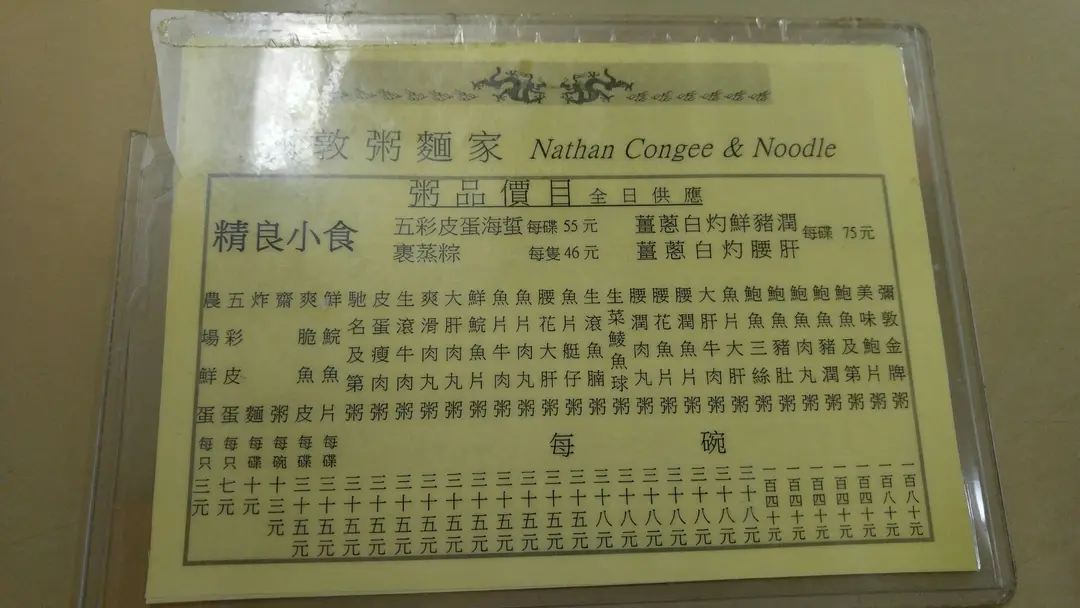 敦粥麵家 Nathan Congee & Noodle
粥品價目 全日供應
精良小食
五彩皮蛋海蜇 每碟 55 元
裹蒸粽 每隻 46 元
薑蔥白灼鮮豬潤
薑蔥白灼腰肝
每碟 75 元
每碗
彌敦金牌粥 一百八十元
美味鮑片粥 一百八十元
鮑魚及第粥 一百四十元
鮑魚豬潤粥 一百四十元
鮑魚肉丸粥 一百四十元
鮑魚豬肚粥 一百四十元
鮑魚三絲粥 一百四十元
魚片大肝粥 三十八元
大肝牛肉粥 三十八元
腰潤魚片粥 三十八元
腰花魚片粥 三十八元
腰潤肉丸粥 三十八元
生菜鯪魚球粥 三十八元
生滾魚腩粥 三十八元
魚片艇仔粥 三十五元
腰花大肝粥 三十五元
魚片肉丸粥 三十五元
魚片牛肉粥 三十五元
鮮鯇魚片粥 三十五元
大肝肉丸粥 三十五元
爽滑肉丸粥 三十五元
生滾牛肉粥 三十五元
皮蛋瘦肉粥 三十五元
馳名及第粥 三十五元
鮮鯇魚片 每碟 三十五元
爽脆魚皮 每碟 三十五元
齋粥 每碗 十三元
炸麵 每碟 十元
五彩皮蛋 每只 七元
農場鮮蛋 每只 三元